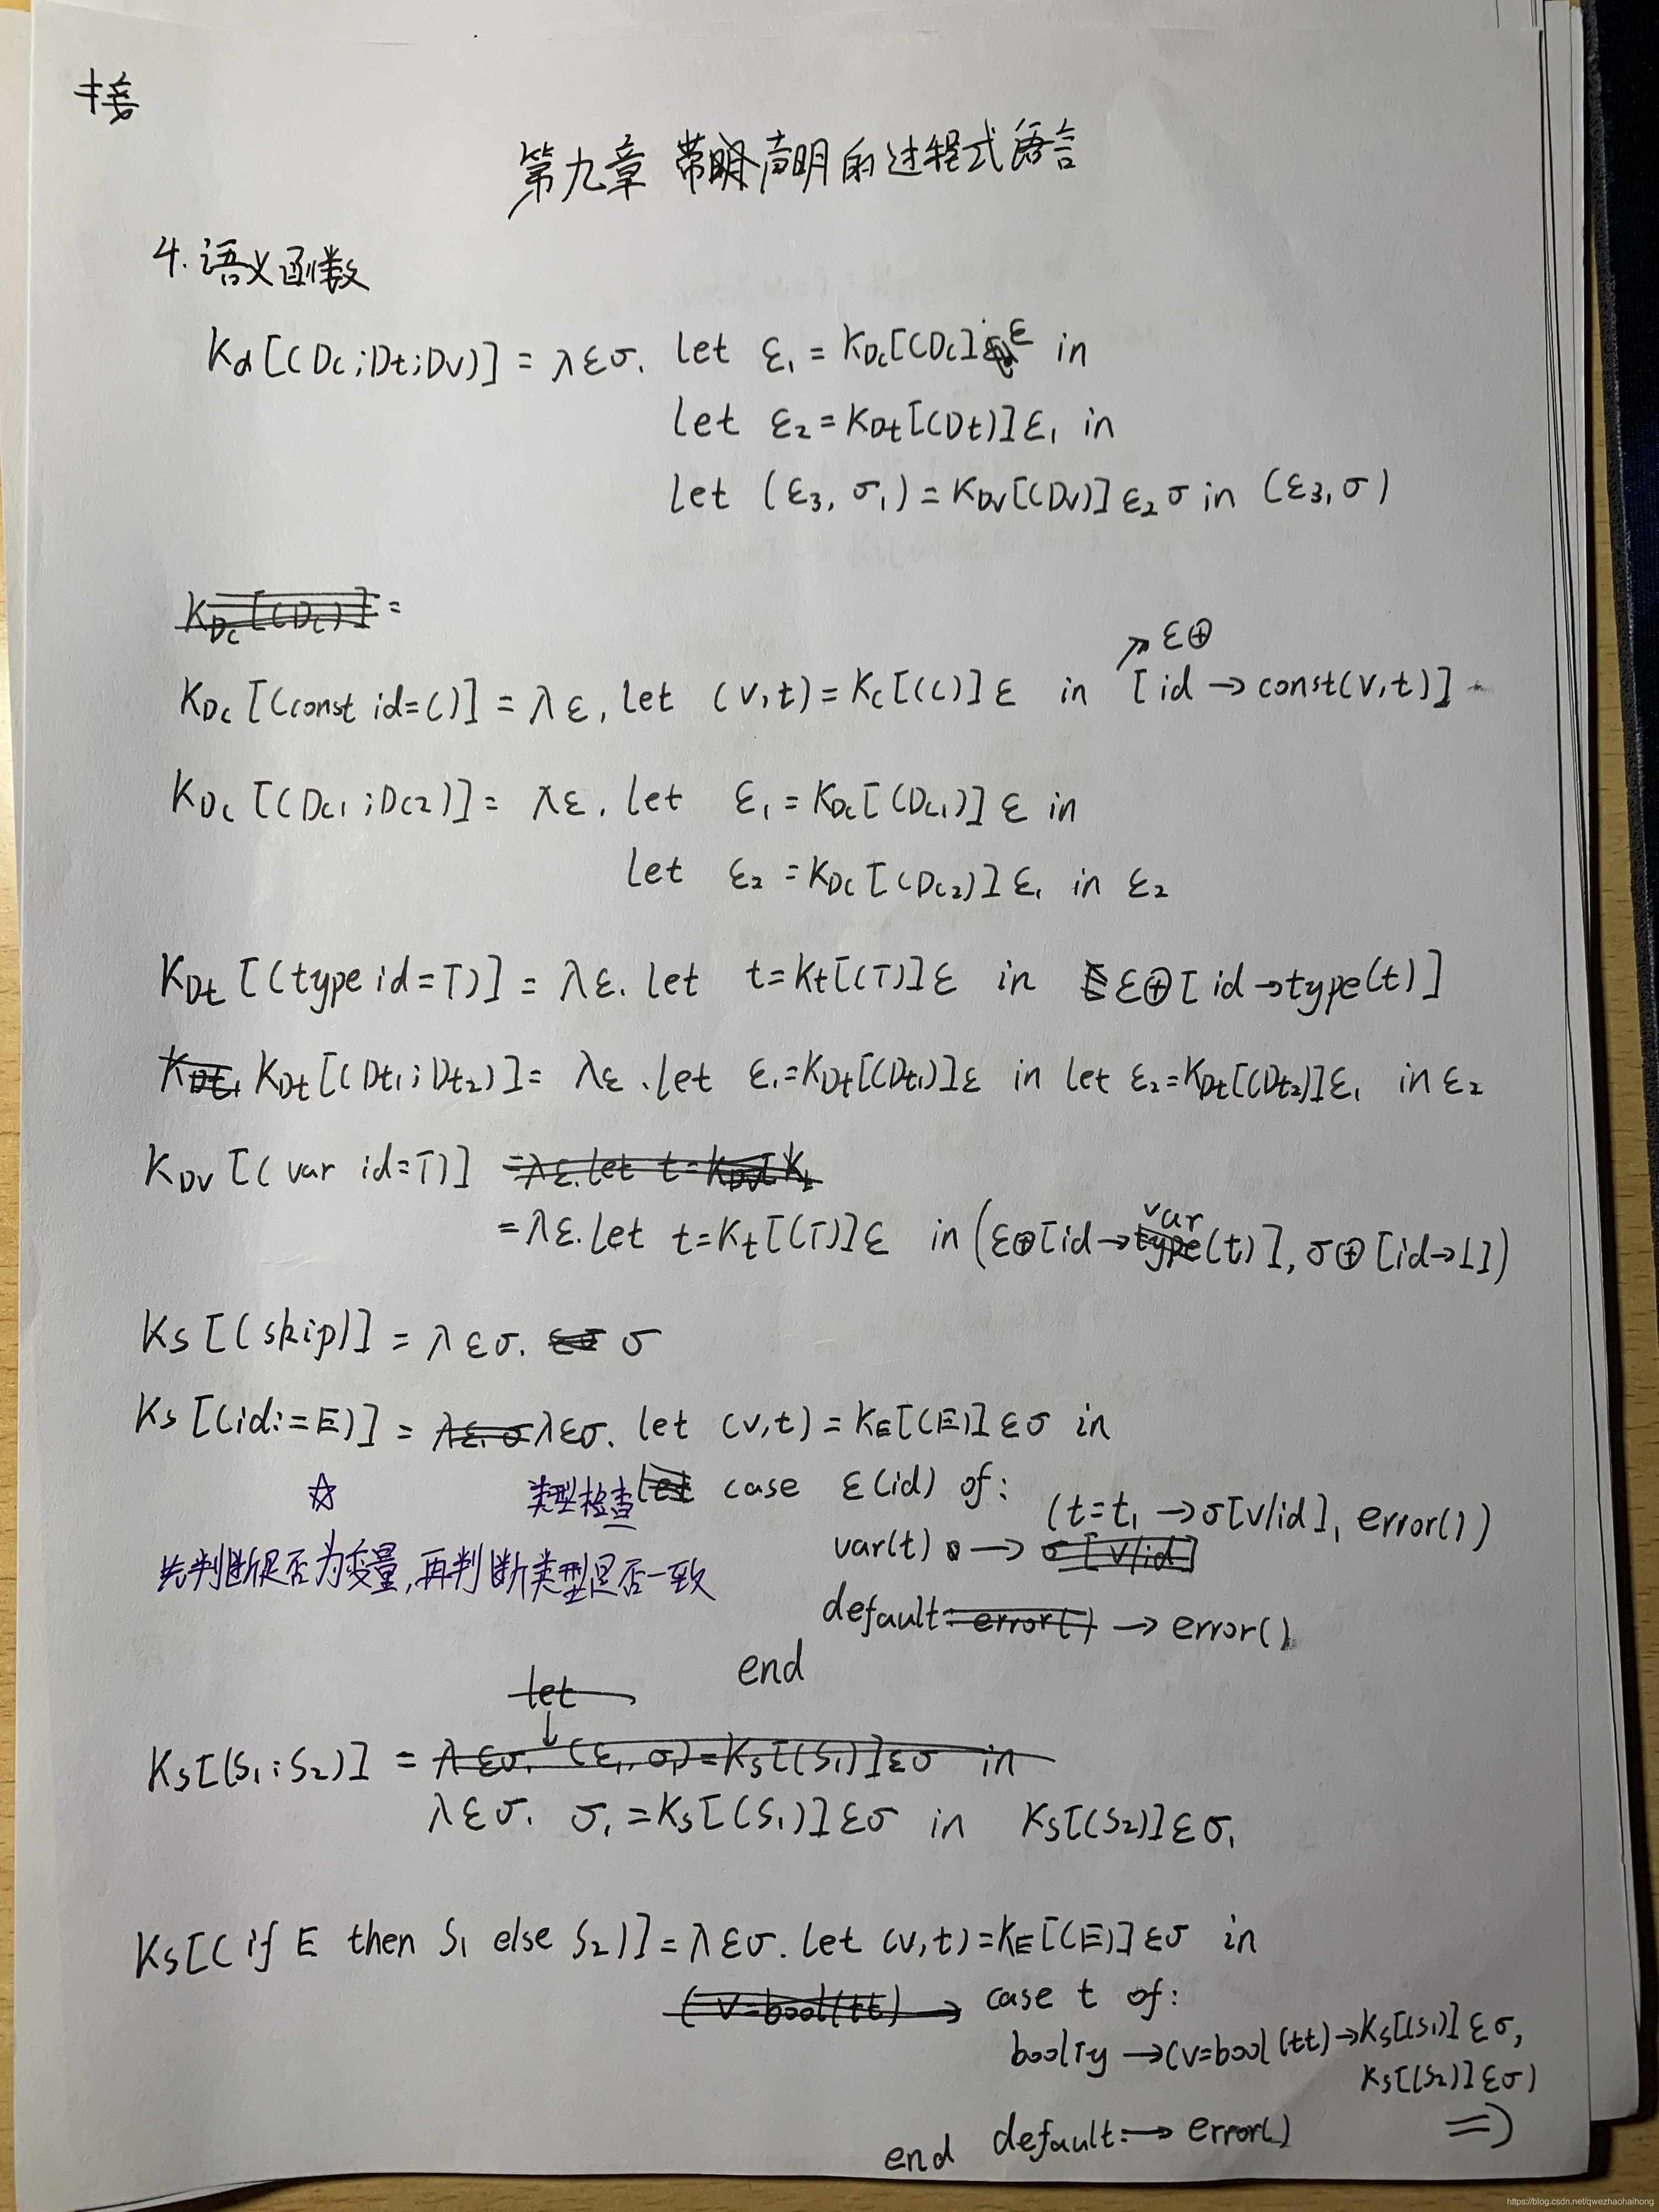 接
第九章 带声明的过程式语言
4. 语义函数
Kd[(Dc;Dt;Dv)] = λεσ. let ε₁ = KDc[(Dc]ε in
let ε₂ = KDt[(Dt)]ε₁ in
let (ε₃, σ₁) = KDv[(Dv)]ε₂σ in (ε₃, σ)
KDc[(Dc)] =
ε⊕
KDc[(const id=C)] = λε. let (v,t) = Kc[(C)]ε in [id → const(v,t)]
KDc[(Dc1;Dc2)] = λε. let ε₁ = KDc[(Dc1)]ε in
let ε₂ = KDc[(Dc2)]ε₁ in ε₂
KDt[(type id=T)] = λε. let t=Kt[(T)]ε in ε⊕[id→type(t)]
KDt[(Dt1;Dt2)] = λε. let ε₁=KDt[(Dt1)]ε in let ε₂=KDt[(Dt2)]ε₁ in ε₂
KDv[(var id=T)] =λε. let t=KDv[Kt
=λε. let t=Kt[(T)]ε in (ε⊕[id→var(t)], σ⊕[id→⊥])
Ks[(skip)] = λεσ. σ
Ks[(id:=E)] = λεσ. let (v,t) = KE[(E)]εσ in
☆ 类型检查 let case ε(id) of:
(t=t₁ → σ[v/id], error())
var(t) → σ[v/id]
先判断是否为变量,再判断类型是否一致
default: error() → error()
end
let
Ks[(S₁;S₂)] = λεσ. (ε₁, σ₁)=Ks[(S₁)]εσ in
λεσ. σ₁ = Ks[(S₁)]εσ in Ks[(S₂)]εσ₁
Ks[(if E then S₁ else S₂)] = λεσ. let (v,t)=KE[(E)]εσ in
(v=bool(tt) → case t of:
boolTy → (v=bool(tt)→Ks[(S₁)]εσ,
Ks[(S₂)]εσ)
end default: → error() =>
https://blog.csdn.net/qwezhaohaihong